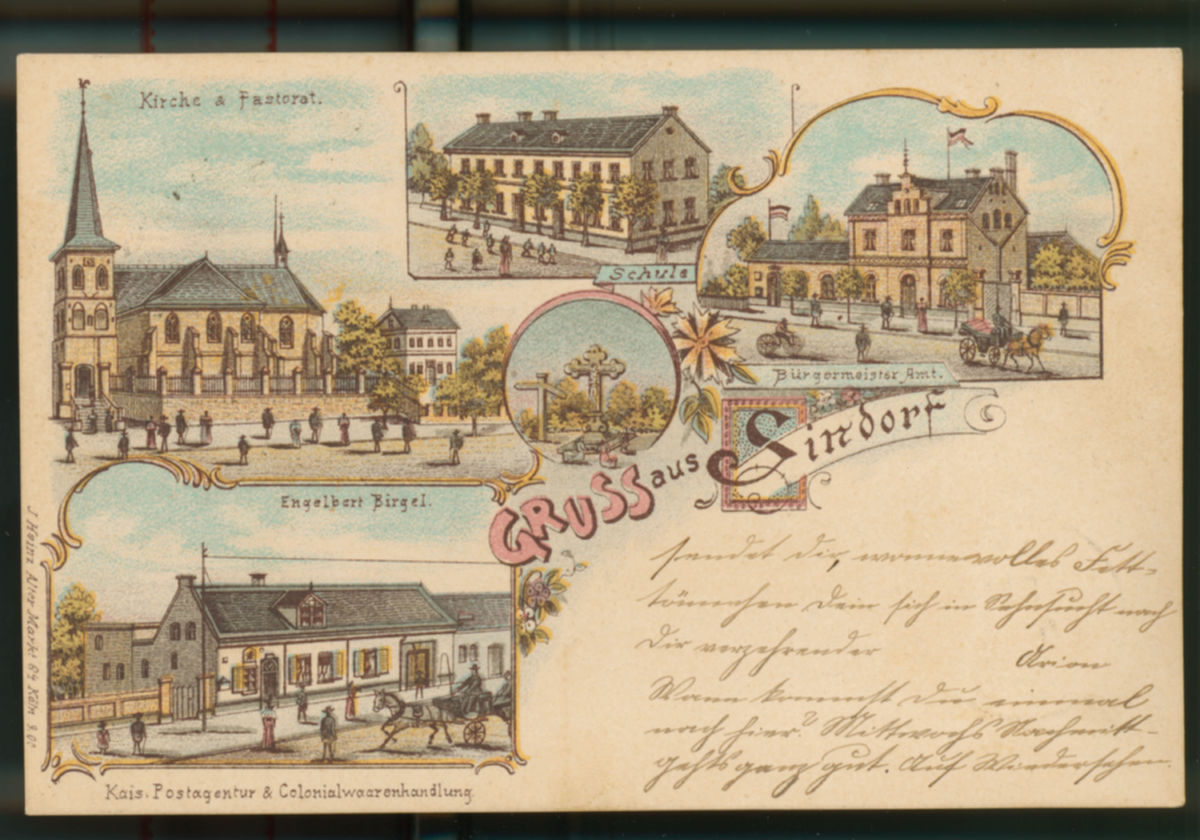 Kirche & Pastorat.
Schule
Bürgermeister Amt.
GRUSS aus Sindorf
Engelbert Birgel.
Kais. Postagentur & Colonialwaarenhandlung.
J. Heinz Alter Markt 64 Köln
sendet dir, wonnevolles Fett-
tönnchen dein sich in Sehnsucht nach
dir verzehrender
Arion
Wann kommst du einmal
nach hier? Mittwochs Nachmitt-
gehts ganz gut. Auf Wiedersehen.